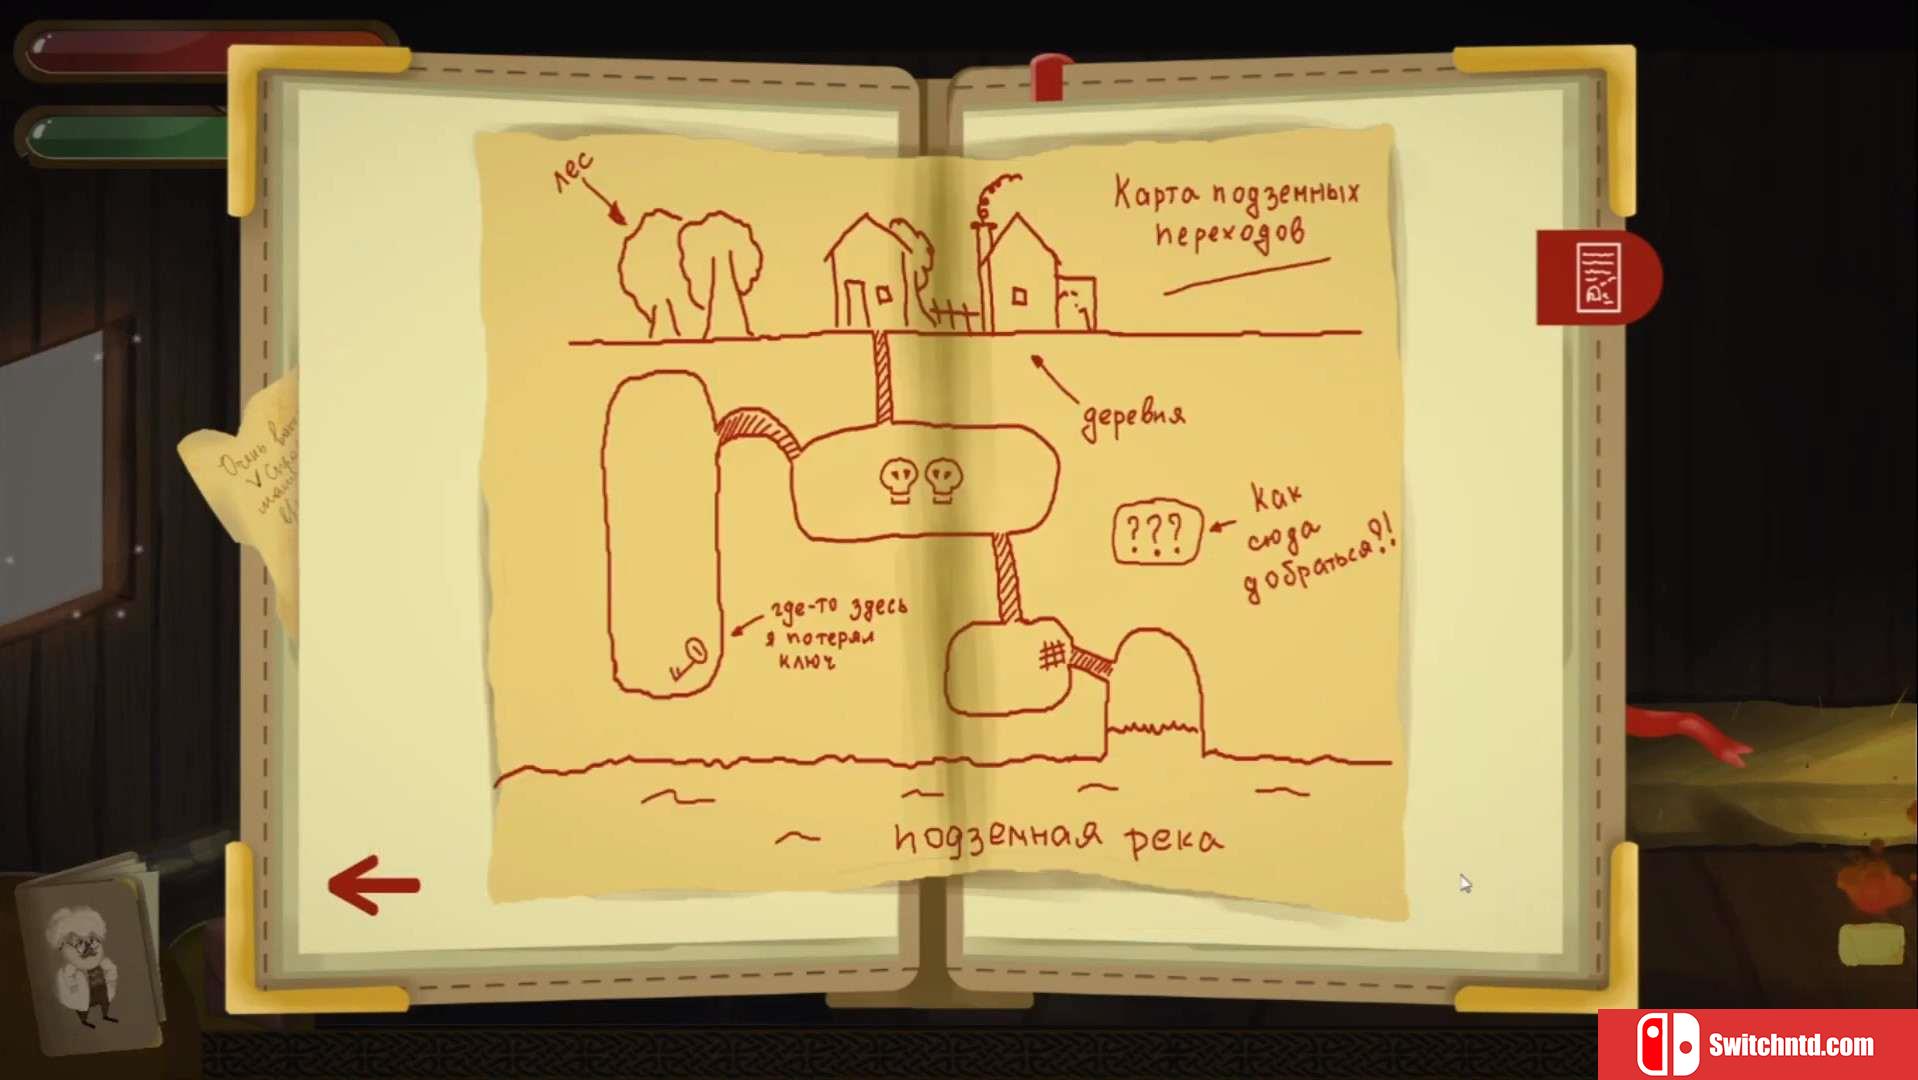 лес
Карта подземных
переходов
деревня
Очень
???
Как
сюда
добраться?!
где-то здесь
я потерял
ключ
подземная река
Switchntd.com